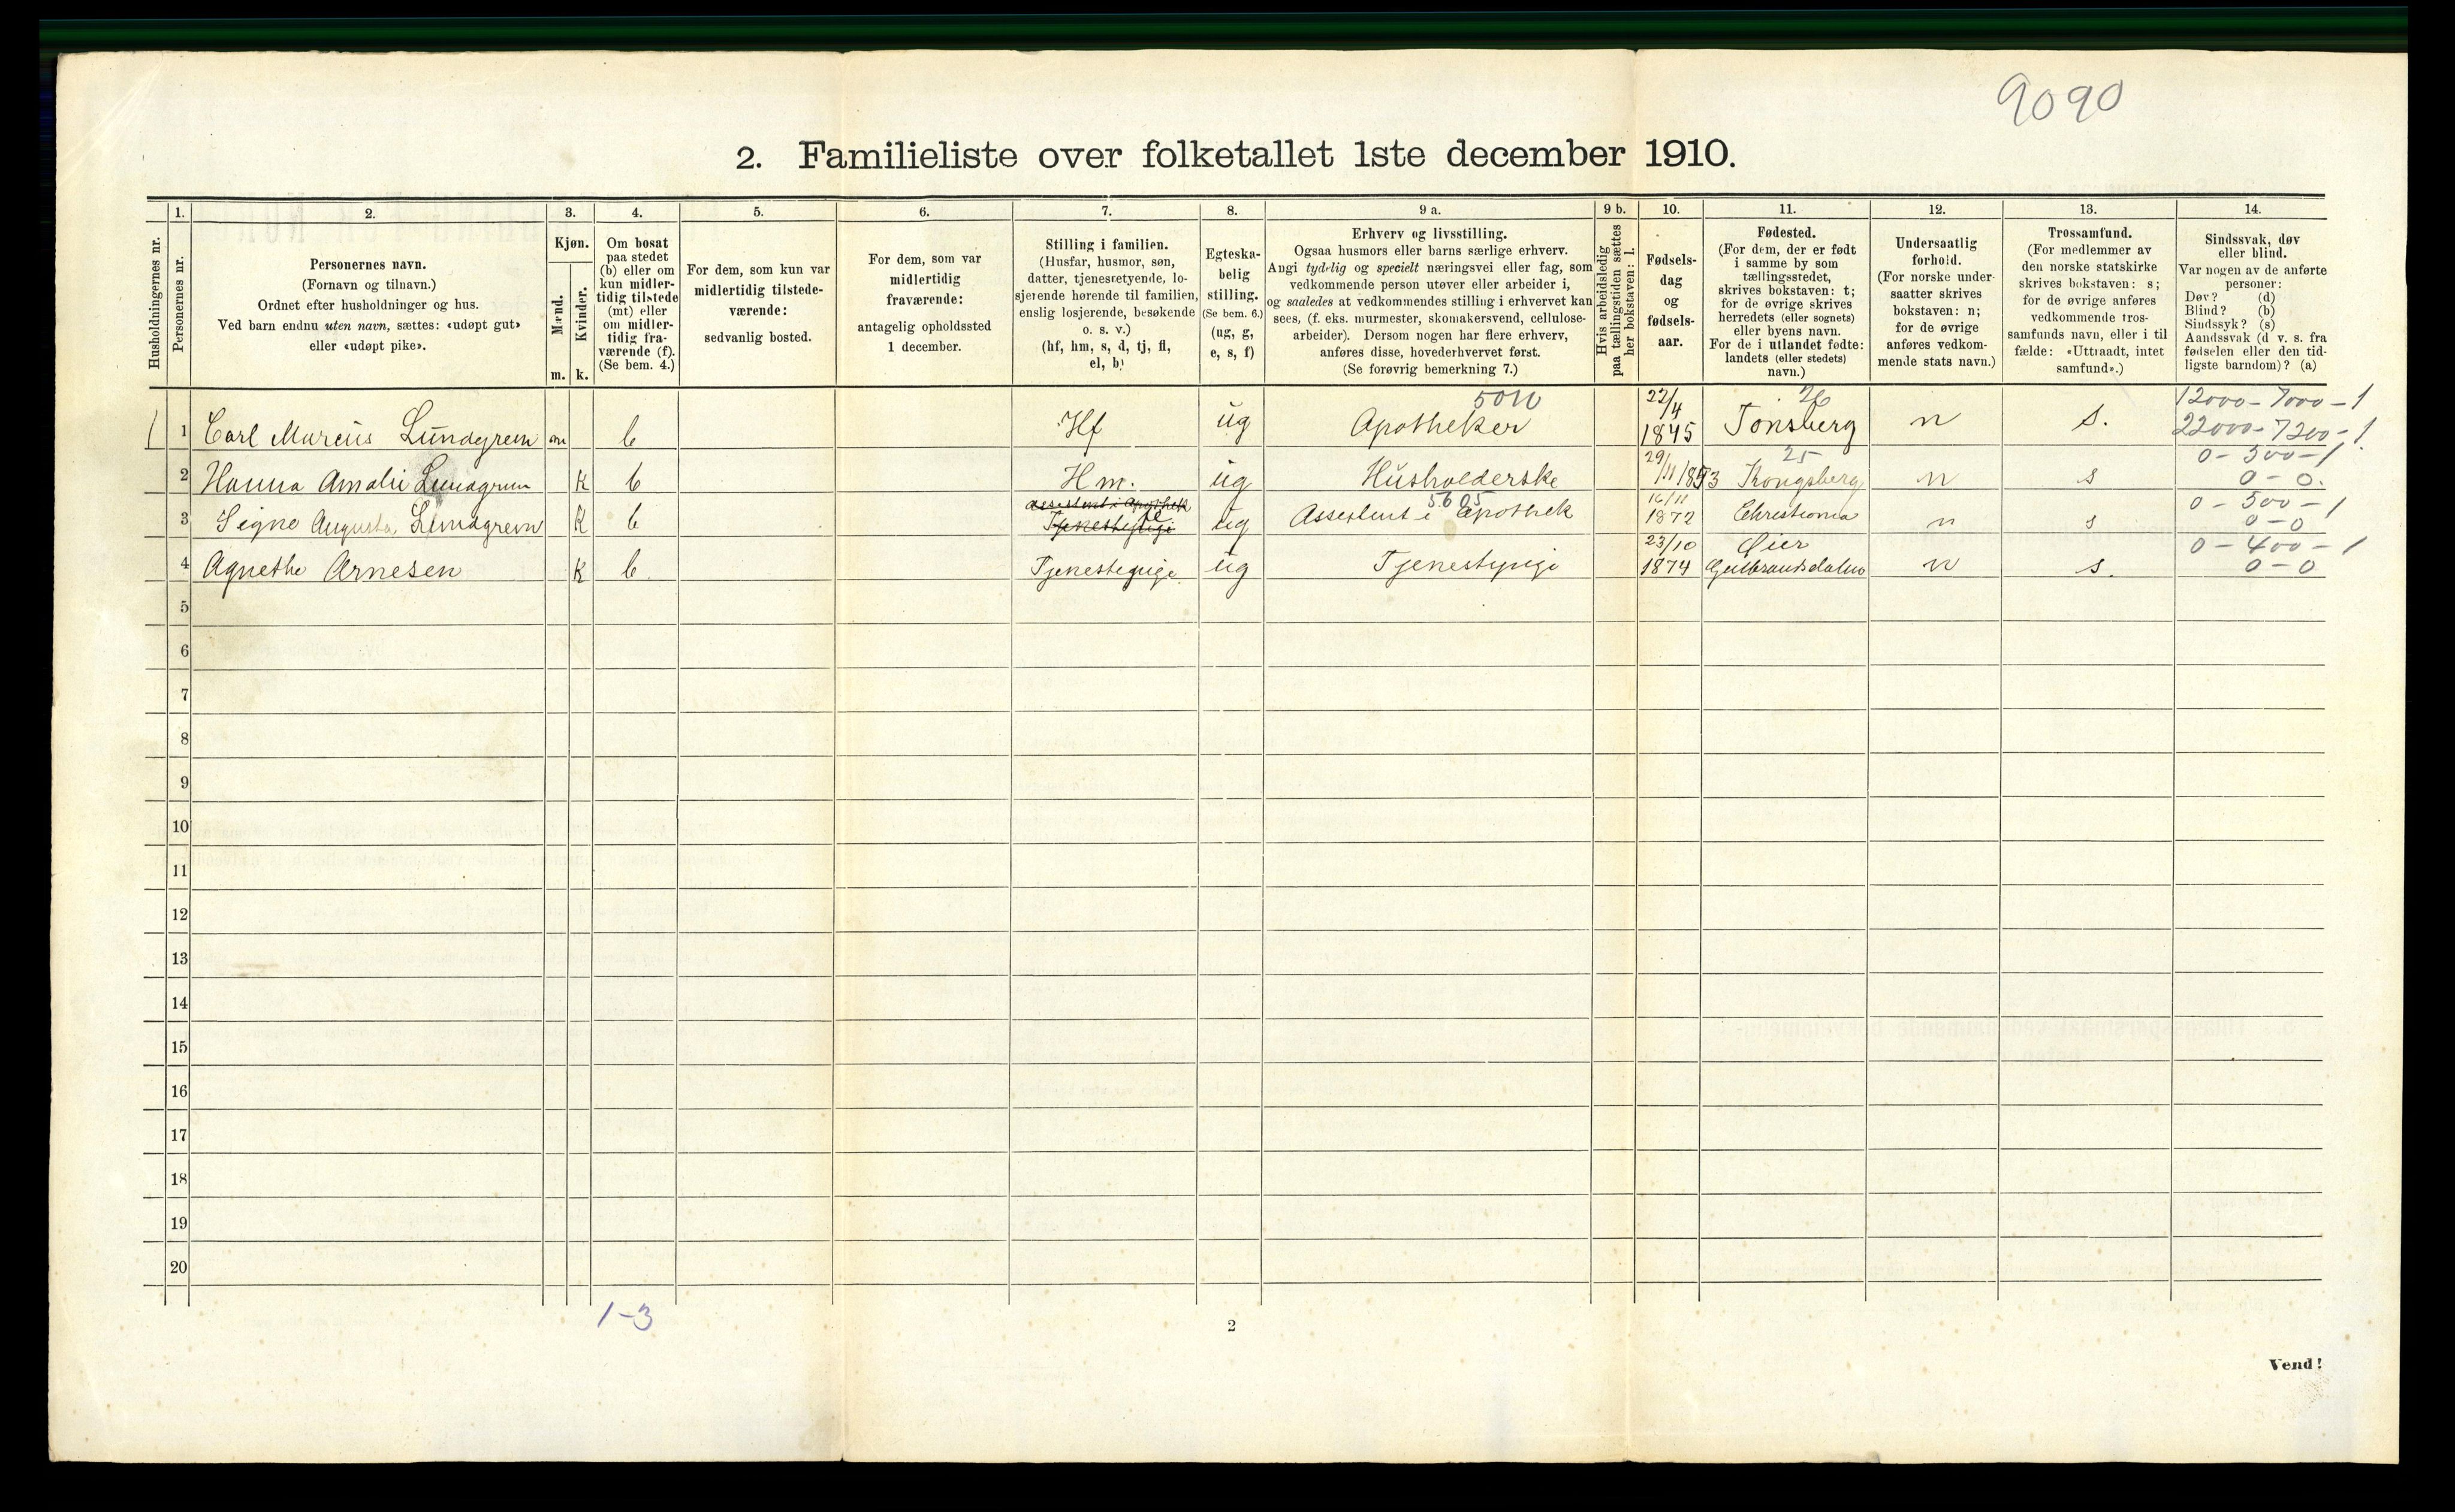 9090
2. Familieliste over folketallet 1ste december 1910.
1. 2. 3. 4. 5. 6. 7. 8. 9 a. 9 b. 10. 11. 12. 13. 14.
Husholdningernes nr.
Personernes nr.
Personernes navn.
(Fornavn og tilnavn.)
Ordnet efter husholdninger og hus.
Ved barn endnu uten navn, sættes: «udøpt gut»
eller «udøpt pike».
Kjøn.
Mænd.
Kvinder.
m. k.
Om bosat
paa stedet
(b) eller om
kun midler-
tidig tilstede
(mt) eller
om midler-
tidig fra-
værende (f).
(Se bem. 4.)
For dem, som kun var
midlertidig tilstede-
værende:
sedvanlig bosted.
For dem, som var
midlertidig
fraværende:
antagelig opholdssted
1 december.
Stilling i familien.
(Husfar, husmor, søn,
datter, tjenestetyende, lo-
sjerende hørende til familien,
enslig losjerende, besøkende
o. s. v.)
(hf, hm, s, d, tj, fl,
el, b)
Egteska-
belig
stilling.
(Se bem. 6.)
(ug, g,
e, s, f)
Erhverv og livsstilling.
Ogsaa husmors eller barns særlige erhverv.
Angi tydelig og specielt næringsvei eller fag, som
vedkommende person utøver eller arbeider i,
og saaledes at vedkommendes stilling i erhvervet kan
sees, (f. eks. murmester, skomakersvend, cellulose-
arbeider). Dersom nogen har flere erhverv,
anføres disse, hovederhvervet først.
(Se forøvrig bemerkning 7.)
Hvis arbeidsledig
paa tællingstiden sættes
her bokstaven: l.
Fødsels-
dag
og
fødsels-
aar.
Fødested.
(For dem, der er født
i samme by som
tællingsstedet,
skrives bokstaven: t;
for de øvrige skrives
herredets (eller sognets)
eller byens navn.
For de i utlandet fødte:
landets (eller stedets)
navn.)
Undersaatlig
forhold.
(For norske under-
saatter skrives
bokstaven: n;
for de øvrige
anføres vedkom-
mende stats navn.)
Trossamfund.
(For medlemmer av
den norske statskirke
skrives bokstaven: s;
for de øvrige anføres
vedkommende tros-
samfunds navn, eller i til
fælde: «Uttraadt, intet
samfund».)
Sindssvak, døv
eller blind.
Var nogen av de anførte
personer:
Døv? (d)
Blind? (b)
Sindssyk? (s)
Aandssvak (d v. s. fra
fødselen eller den tid-
ligste barndom)? (a)
22/4 26 12000-7000-1
1 1 Carl Marcus Lundgreen m b Hf ug Apotheker 1845 Tønsberg n s. 22000-7200-1
25 0-300-1
2 Hanna Amalie Lundgreen k b Hm. ug Husholderske 29/11/1853 Kongsberg n s 0-0.
assistent i Apothek 5605 16/11 0-500-1
3 Signe Augusta Lundgreen k b Tjenestepige ug Assistent i Apothek 1872 Christiania n s 0-0
23/10 Øier 0-400-1
4 Agnethe Arnesen k b. Tjenestepige ug Tjenestepige 1874 Gulbrandsdalen n s. 0-0
5
6
7
8
9
10
11
12
13
14
15
16
17
18
19
20
1-3
2
Vend!